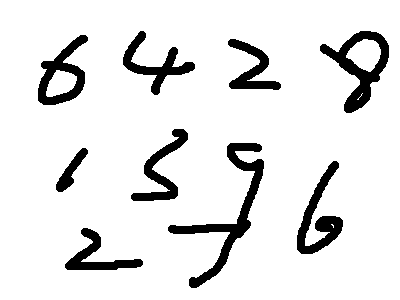 6 4 2 8
1 5 9 6
2 7